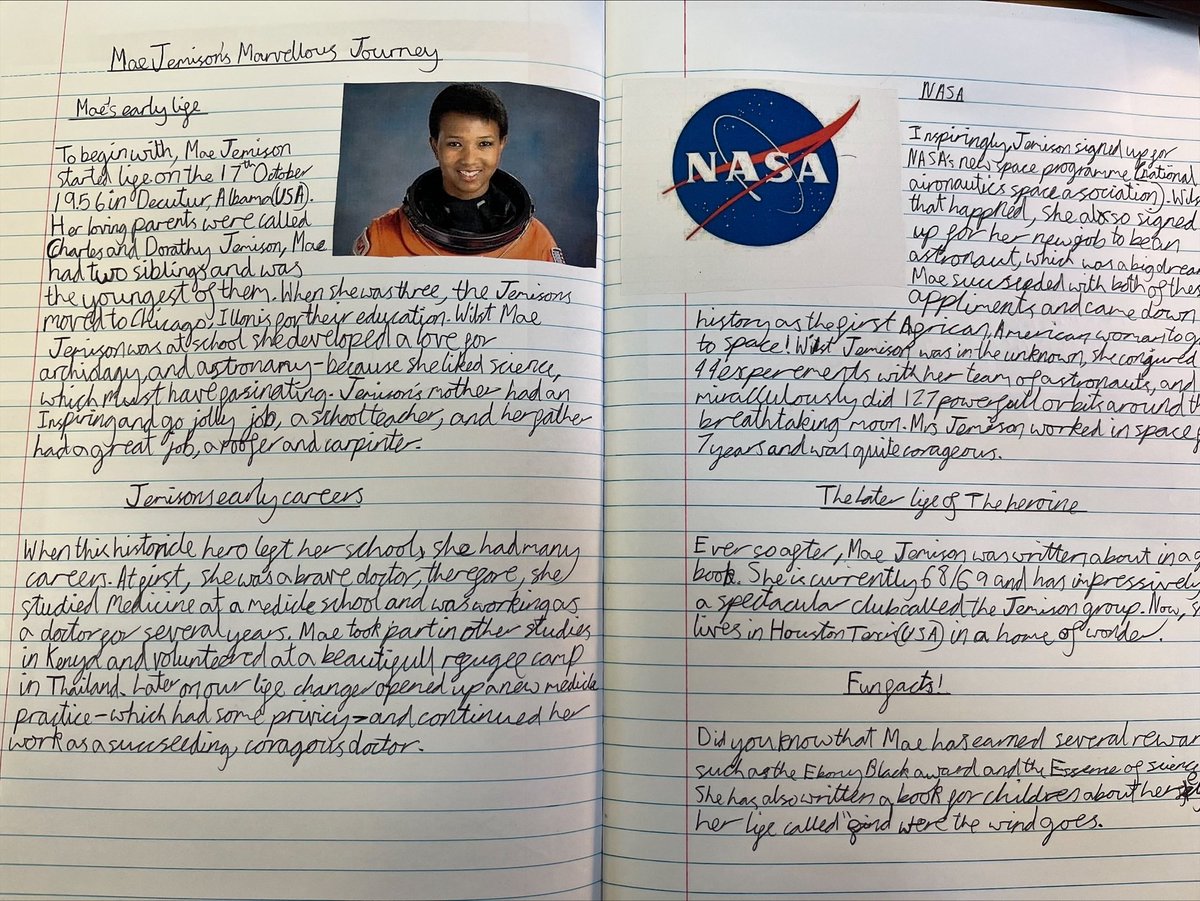 Mae Jemison's Marvellous Journey
Mae's early life
To begin with, Mae Jemison
started life on the 17th October
1956 in Decutur, Albama (USA).
Her loving parents were called
Charles and Dorathy Jemison, Mae
had two siblings and was
the youngest of them. When she was three, the Jemisons
moved to Chicago, Illonis for their education. Wilst Mae
Jemison was at school she developed a love for
archidagy, and astronamy - because she liked science,
which must have fasinating. Jemison's mother had an
Inspiring and go jolly job, a school teacher, and her father
had a great job, a roofer and carpinter.
Jemisons early careers
When this historicle hero left her schools, she had many
careers. At first, she was a brave doctor, therefore, she
studied Medicine at a medicle school and was working as
a doctor for several years. Mae took part in other studies
in Kenya and volunteered at a beautifull refugee camp
in Thailand. Later on our life changer opened up a new medicle
practice - which had some privicy - and continued her
work as a succseeding, coragous doctor.
NASA
NASA
Inspiringly, Jemison signed up for
NASA's new space programme (national
aironautics space asociation). Wilst
that happned, she also signed
up for her new job to be an
astronaut, which was a big dream
Mae succseeded with both of these
appliments and came down
history as the first African, American woman to go
to space! Wilst Jemison was in the unknown, she conjured
44 experements with her team of astronauts, and
miracllulously did 127 powerfull orbits around the
breathtaking moon. Mrs Jemison worked in space f
7 years and was quite corageous.
The later life of The heroine
Ever so after, Mae Jemison was written about in a
book. She is currently 68/69 and has impressively
a spectacular club called the Jemison group. Now, s
lives in Houston Texis (USA) in a home of wonder.
Fun facts!
Did you know that Mae has earned several rewar
such as the Ebony Black award and the Essence of science
She has also written a book for children about her
her life called "find were the wind goes.